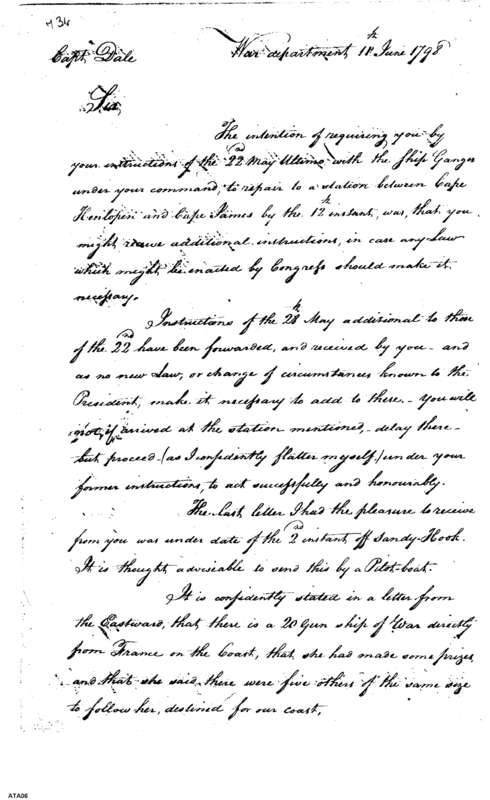 734
Capt. Dale
War department 18th June 1798
Sir,
The intention of requiring you by
your instructions of the 22nd May Ultimo with the Ship Ganges
under your command, to repair to a station between Cape
Henlopen and Cape James by the 12th instant, was, that you
might receive additional instructions, in case any Law
which might be enacted by Congress should make it
necessary.
Instructions of the 28th May additional to those
of the 22nd have been forwarded, and received by you – and
as no new Law, or change of circumstances known to the
President, make it necessary to add to these. – You will
not, if arrived at the station mentioned, – delay there –
but proceed – (as I confidently flatter myself) under your
former instructions, to act successfully and honourably.
The last letter I had the pleasure to receive
from you was under date of the 2nd instant off Sandy-Hook.
It is thought adviseable to send this by a Pilot-boat.
It is confidently stated in a letter from
the Eastward, that there is a 20 Gun ship of War directly
from France on the Coast, that she had made some prizes,
and that she said, there were five others of the same size
to follow her, destined for our coast.
ATA06